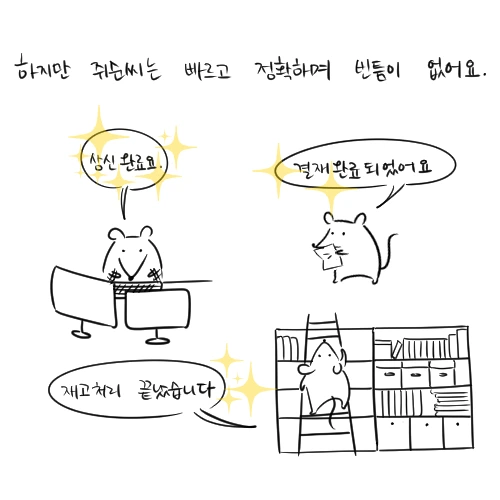 하지만 쥐순씨는 빠르고 정확하며 빈틈이 없어요.
상신 완료요.
결재 완료 되었어요
재고처리 끝났습니다